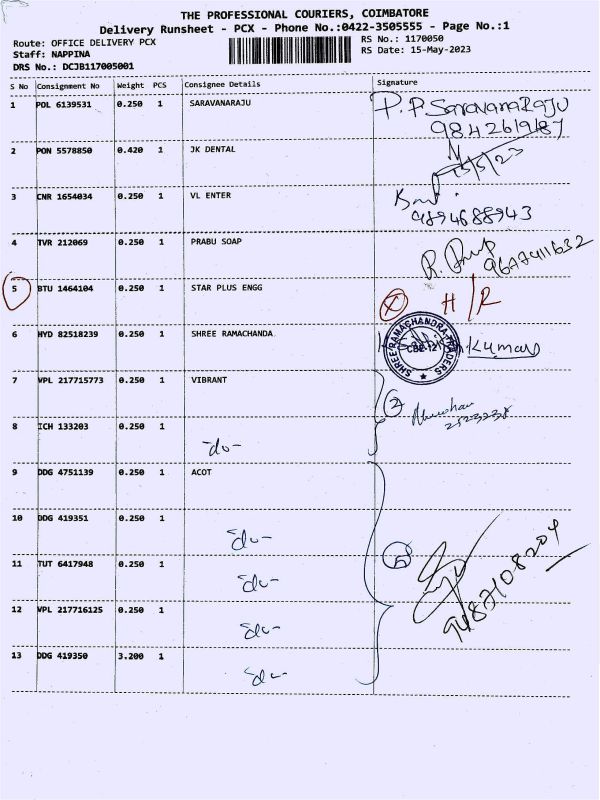 THE PROFESSIONAL COURIERS, COIMBATORE
Delivery Runsheet - PCX - Phone No.:0422-3505555 - Page No.:1
Route: OFFICE DELIVERY PCX
RS No.: 1170050
Staff: NAPPINA
RS Date: 15-May-2023
DRS No.: DCJB117005001
S No Consignment No Weight PCS Consignee Details Signature
1 POL 6139531 0.250 1 SARAVANARAJU P.P SaravanaRaju
9842619187
2 PON 5578850 0.420 1 JK DENTAL
15/5/23
3 CNR 1654034 0.250 1 VL ENTER
9894688943
4 TVR 212069 0.250 1 PRABU SOAP
9677411632
5 BTU 1464104 0.250 1 STAR PLUS ENGG X H/R
6 HYD 82518239 0.250 1 SHREE RAMACHANDA Kumar
SHREE RAMACHANDRA TRADERS
CBE-12
7 VPL 217715773 0.250 1 VIBRANT
2
2523238
8 ICH 133203 0.250 1
-do-
9 DDG 4751139 0.250 1 ACOT
10 DDG 419351 0.250 1
-do-
5
11 TUT 6417948 0.250 1
-do-
9487108204
12 VPL 217716125 0.250 1
-do-
13 DDG 419350 3.200 1
-do-